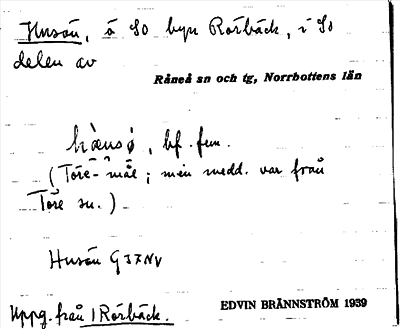 Husön, ö SO byn Rörbäck, i SO
delen av
Råneå sn och tg, Norrbottens län
hænsø, bf. fem.
(Töre-mål; min medd. var från
Töre sn.)
Husön G J X NV
Uppg. från I Rörbäck.
EDVIN BRÄNNSTRÖM 1939